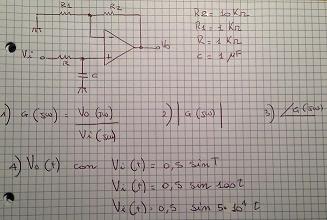 R1 R2
R2 = 10 KΩ
R1 = 1 KΩ
R = 1 KΩ
C = 1 μF
Vi R C Vo
1) G(jω) = Vo(jω) / Vi(jω) 2) |G(jω)| 3) ∠G(jω)
4) Vo(t) con Vi(t) = 0,5 sin t
Vi(t) = 0,5 sin 100 t
Vi(t) = 0,5 sin 5·10⁴ t